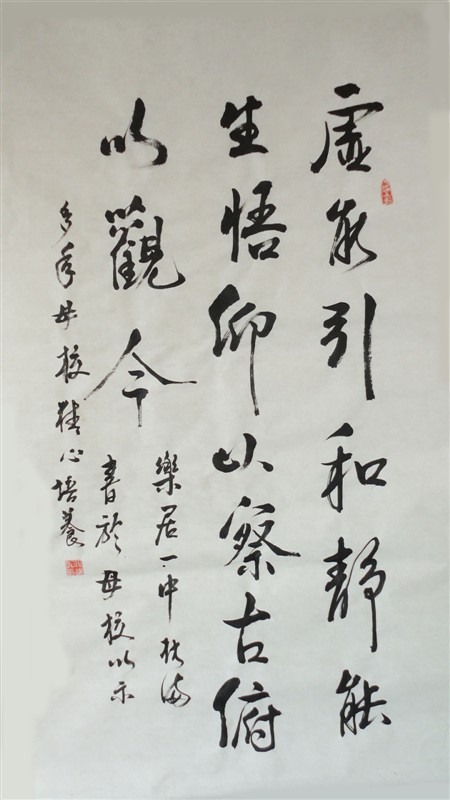 虚能引和静能
生悟仰以察古俯
以觀今
樂居一中
書於母校以示
多年母校精心培養